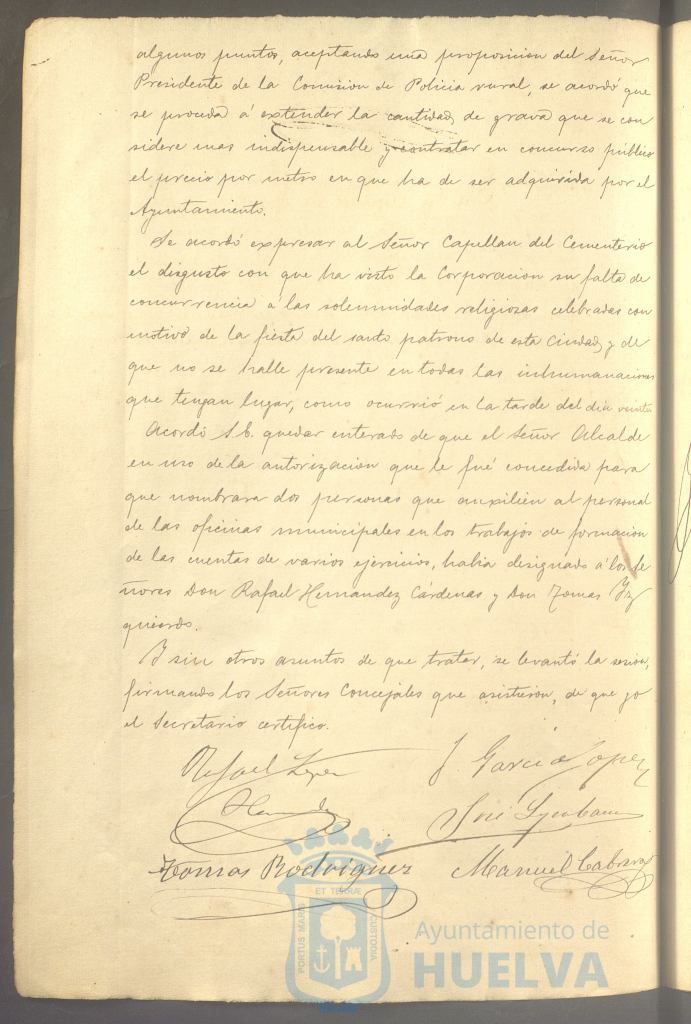 algunos puntos, aceptando una proposicion del Señor
Presidente de la Comision de Policia rural, se acordó que
se proceda á extender la cantidad de grava que se con
sidere mas indispensable y contratar en concurso público
el precio por metro en que ha de ser adquirida por el
Ayuntamiento.
Se acordó expresar al Señor Capellan del Cementerio
el disgusto con que ha visto la Corporacion su falta de
concurrencia á las solemnidades religiosas celebradas con
motivo de la fiesta del santo patrono de esta Ciudad y de
que no se halle presente en todas las inhumanaciones
que tengan lugar, como ocurrió en la tarde del dia veinte
Acordó S.E. quedar enterado de que el Señor Alcalde
en uso de la autorizacion que le fué concedida para
que nombrara dos personas que auxilien al personal
de las oficinas municipales en los trabajos de formacion
de las cuentas de varios ejercicios, habia designado á los Se
ñores Don Rafael Hernandez Cárdenas y Don Tomas Yz
quierdo.
Y sin otros asuntos de que tratar, se levantó la sesion,
firmando los Señores Concejales que asistieron, de que yo
el Secretario certifico.
Rafael Lopez
J. Garcia Lopez
José
Tomas Rodriguez
Manuel Cabrera
PORTUS MARIS ET TERRÆ CUSTODIA
Ayuntamiento de
HUELVA